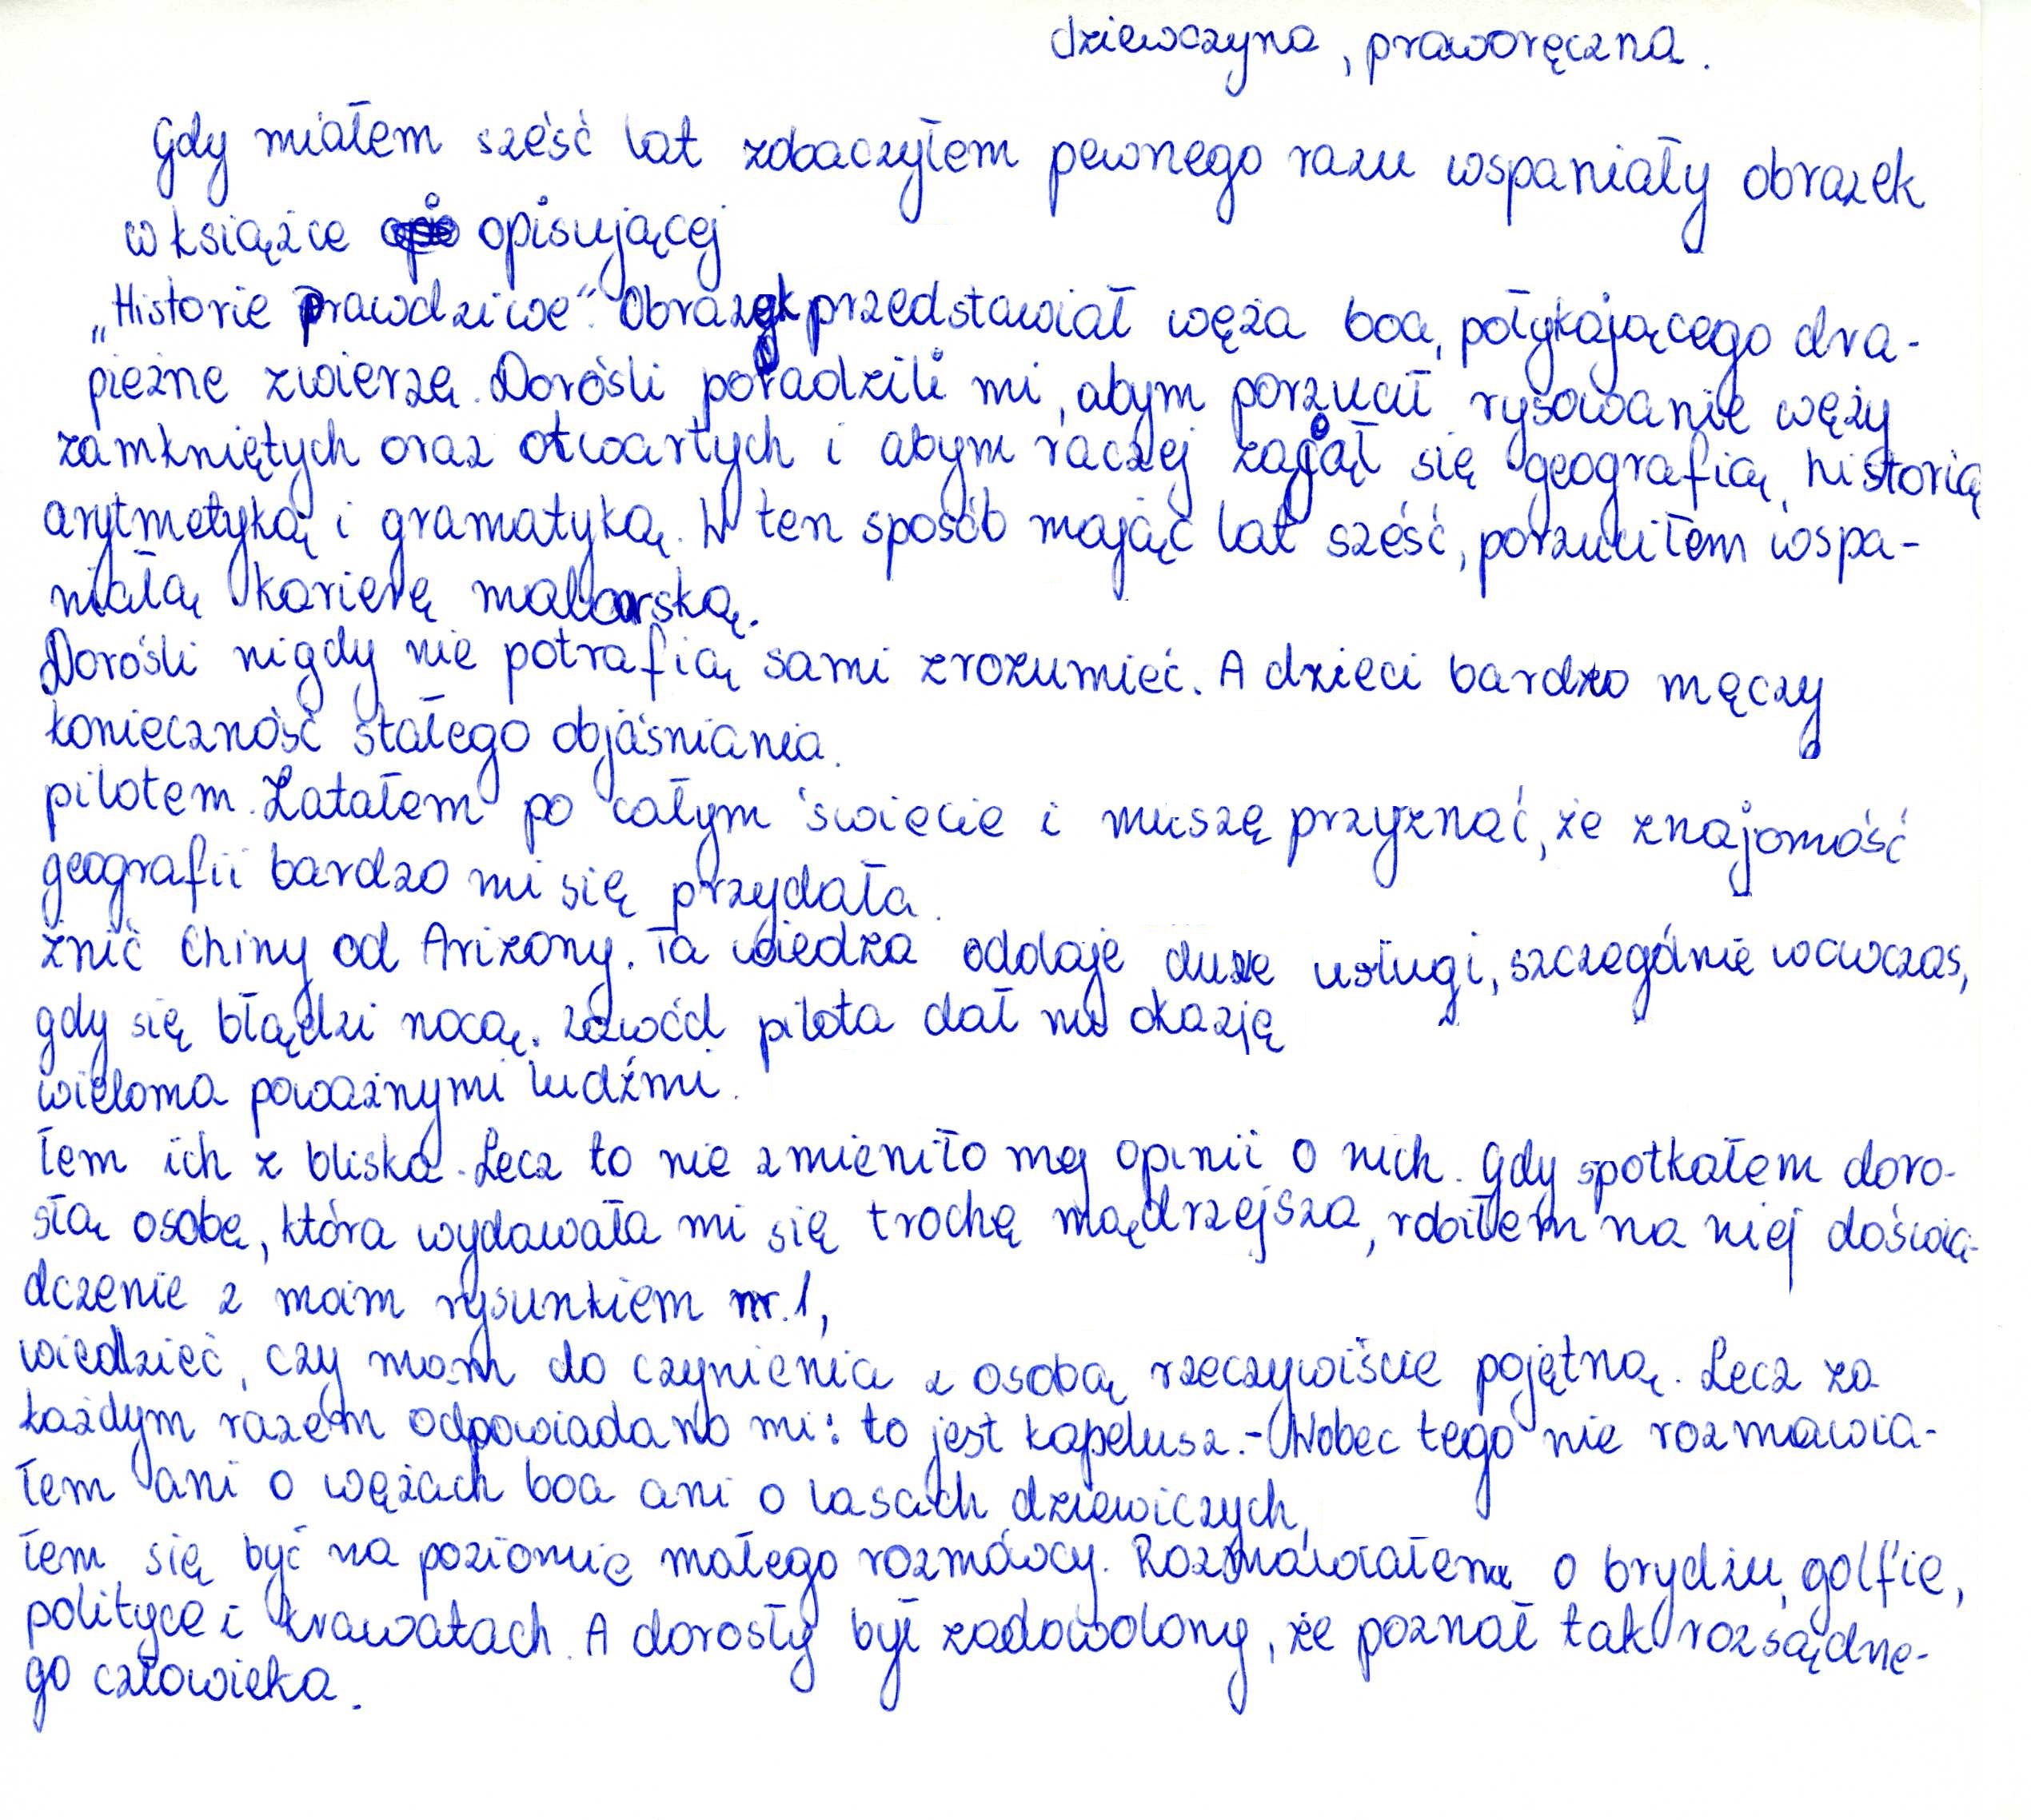 dziewczyna, praworęczna.
Gdy miałem sześć lat zobaczyłem pewnego razu wspaniały obrazek
w książce opisującej
„Historie prawdziwe". Obrazek przedstawiał węża boa, połykającego dra-
pieżne zwierzę. Dorośli poradzili mi, abym porzucił rysowanie węży
zamkniętych oraz otwartych i abym raczej zajął się geografią, historią
arytmetyką i gramatyką. W ten sposób mając lat sześć, porzuciłem wspa-
niałą karierę malarską.
Dorośli nigdy nie potrafią sami zrozumieć. A dzieci bardzo męczy
konieczność stałego objaśniania.
pilotem. Latałem po całym świecie i muszę przyznać, że znajomość
geografii bardzo mi się przydała.
żnić Chiny od Arizony. Ta wiedza oddaje duże usługi, szczególnie wówczas,
gdy się błądzi nocą. Zawód pilota dał mi okazję
wieloma poważnymi ludźmi.
łem ich z bliska. Lecz to nie zmieniło mej opinii o nich. Gdy spotkałem doro-
słą osobę, która wydawała mi się trochę mądrzejsza, robiłem na niej doświa-
dczenie z moim rysunkiem nr. 1,
wiedzieć, czy mam do czynienia z osobą rzeczywiście pojętną. Lecz za
każdym razem odpowiadano mi: to jest kapelusz.- Wobec tego nie rozmawia-
łem ani o wężach boa ani o lasach dziewiczych,
łem się być na poziomie małego rozmówcy. Rozmawiałem o brydżu, golfie,
polityce i krawatach. A dorosły był zadowolony, że poznał tak rozsądne-
go człowieka.